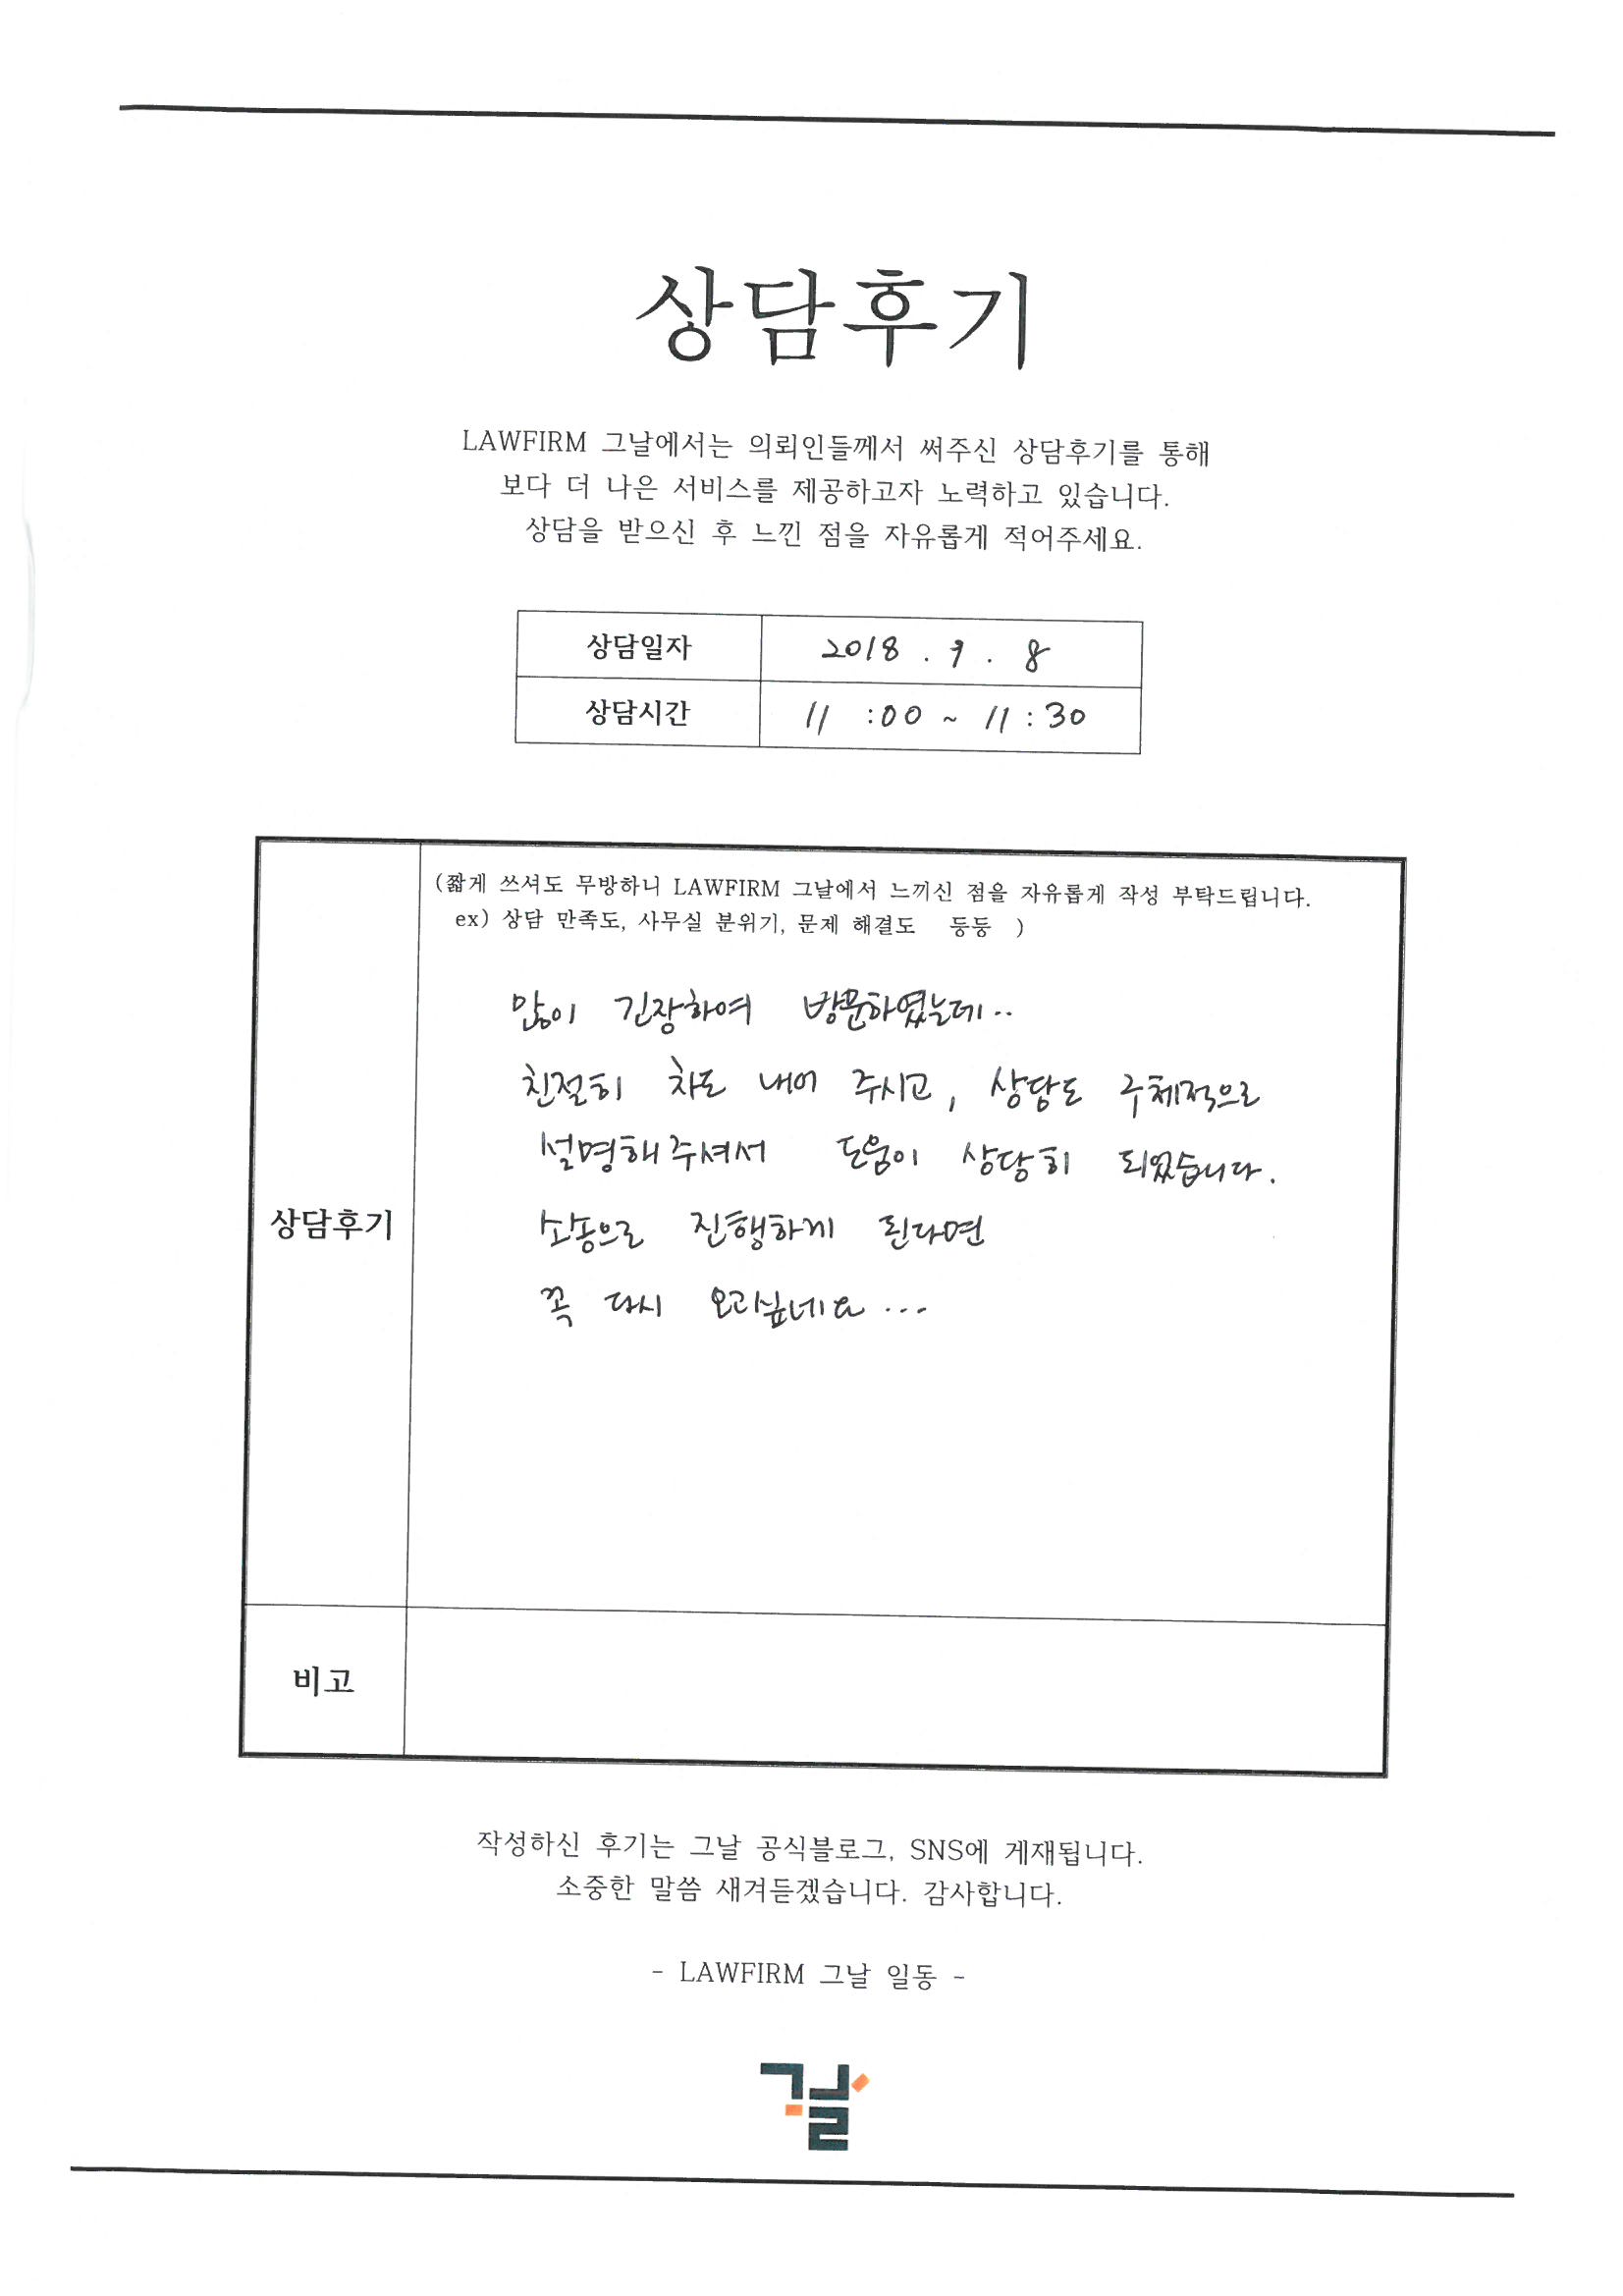 상담후기
LAWFIRM 그날에서는 의뢰인들께서 써주신 상담후기를 통해
보다 더 나은 서비스를 제공하고자 노력하고 있습니다.
상담을 받으신 후 느낀 점을 자유롭게 적어주세요.
상담일자 2018 . 9 . 8
상담시간 11 :00 ~ 11 : 30
(짧게 쓰셔도 무방하니 LAWFIRM 그날에서 느끼신 점을 자유롭게 작성 부탁드립니다.
ex) 상담 만족도, 사무실 분위기, 문제 해결도 등등 )
많이 긴장하여 방문하였는데..
친절히 차도 내어 주시고, 상담도 구체적으로
설명해주셔서 도움이 상당히 되었습니다.
상담후기
소송으로 진행하게 된다면
꼭 다시 오고싶네요...
비고
작성하신 후기는 그날 공식블로그, SNS에 게재됩니다.
소중한 말씀 새겨듣겠습니다. 감사합니다.
- LAWFIRM 그날 일동 -
그날